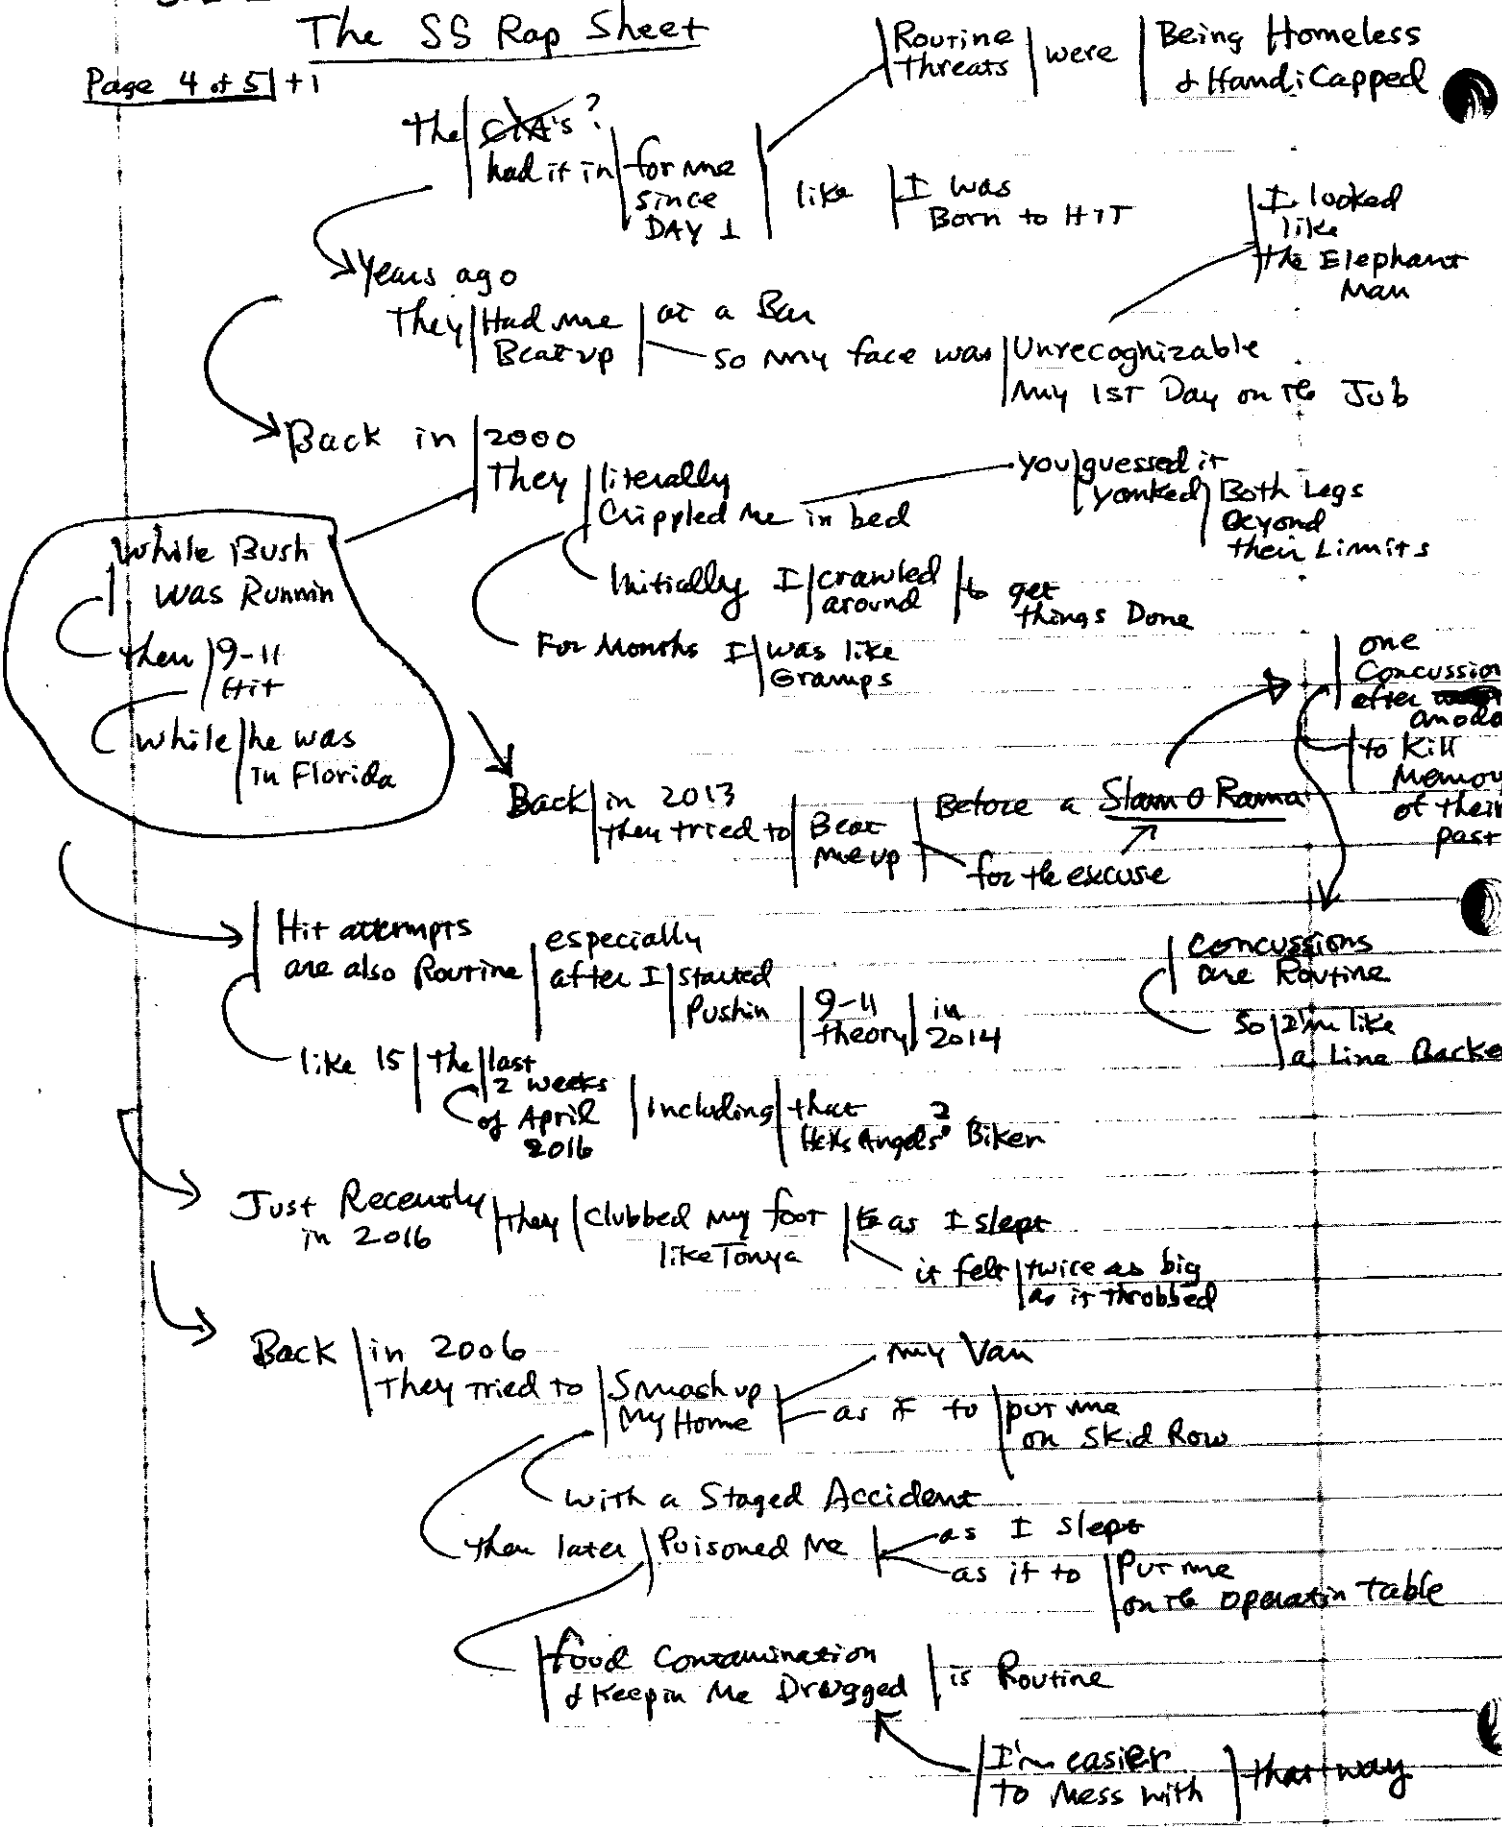 The SS Rap Sheet
Page 4 of 5 +1
Routine
threats
were
Being Homeless
& HandiCapped
The CIA's?
had it in
for me
since
DAY 1
like
I was
Born to HIT
I looked
like
the Elephant
Man
Years ago
They
Had me
Beat up
at a Bar
so my face was
Unrecognizable
my 1ST Day on the Job
Back in
2000
They
literally
Crippled Me in bed
you guessed it
yonked
Both Legs
Beyond
their Limits
Initially I
crawled
around
to get
things Done
For Months I
was like
Gramps
While Bush
was Runnin
then
9-11
Hit
while
he was
in Florida
one
Concussion
after
anoda
to Kill
Memory
of their
past
Back
in 2013
they tried to
Beat
me up
Before a Slam O Rama
for the excuse
Concussions
are Routine
so
I'm like
a Line Backe
Hit attempts
are also Routine
especially
after I
started
Pushin
9-11
theory
in
2014
like 15
the
last
2 weeks
of April
2016
Including
that
Hells Angels? Biker
Just Recently
in 2016
they
Clubbed my foot
like Tonya
as I slept
it felt
twice as big
as it throbbed
Back
in 2006
They tried to
Smash up
My Home
my Van
as if to
put me
on Skid Row
with a Staged Accident
then later
Poisoned Me
as I slept
as if to
Put me
on the Operatin Table
food Contamination
& Keepin Me Drugged
is Routine
I'm easier
to Mess with
that way